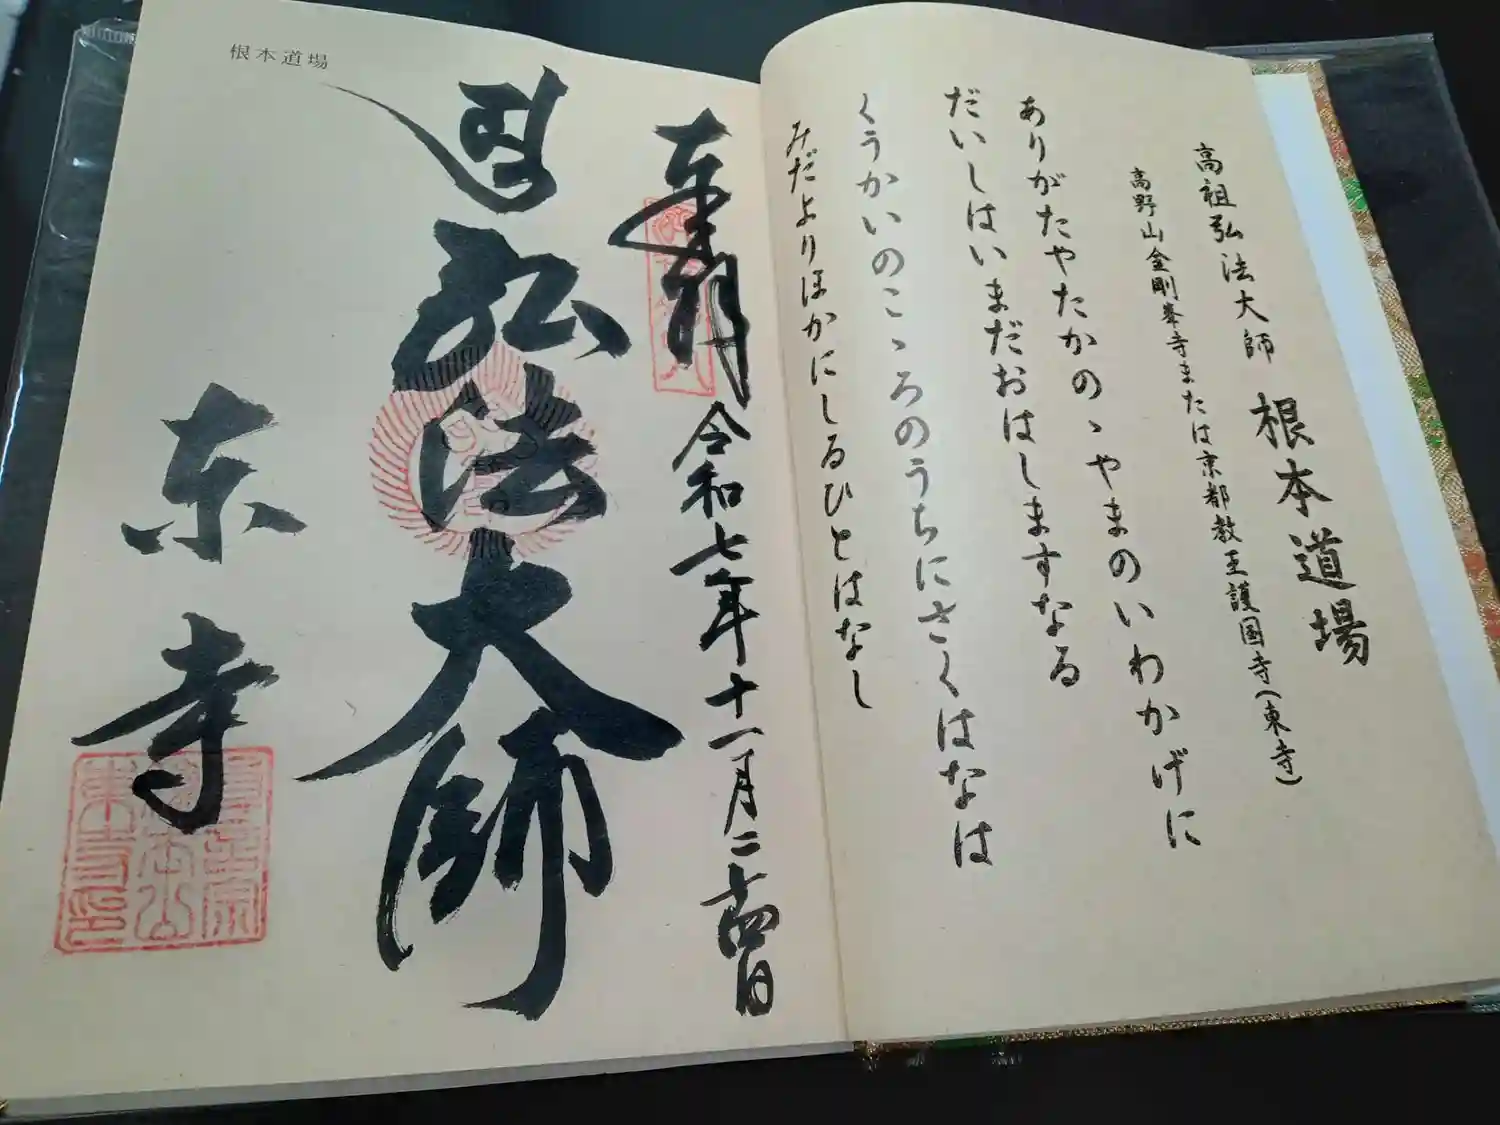 根本道場
高祖弘法大師
高野山金剛峯寺または京都教王護国寺(東寺)
ありがたやたかのゝやまのいわかげに
だいしはいまだおはしますなる
くうかいのこゝろのうちにさくはなは
みだよりほかにしるひとはなし
根本道場
奉拝
令和七年十一月二十四日
弘法大師
東寺